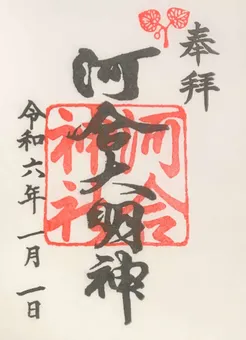 奉拝
河合大明神
河合神社
令和六年一月一日